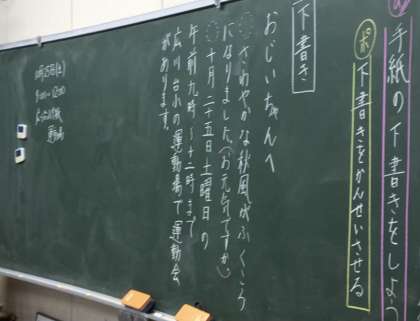 手紙の下書きをしよう
ポ 下書きをかんせいさせる
下書き
おじいちゃんへ
さわやかな秋風がふくころ
になりました。(お元気ですか)
十月二十五日土曜日の
午前九時〜十二時まで
広川台小の運動場で運動会
があります。
10月25日(土)
9:00〜12:00
運動場